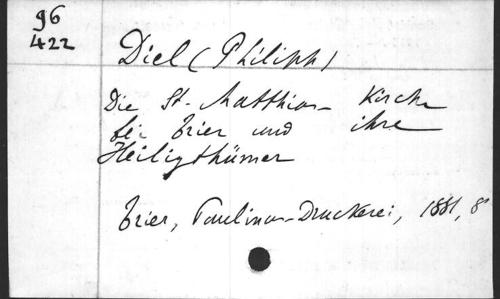 96
422
Diel (Philipp)
Die St. Matthias- Kirche
bei Trier und ihre
Heiligthümer
Trier, Paulinus-Druckerei, 1881, 8°